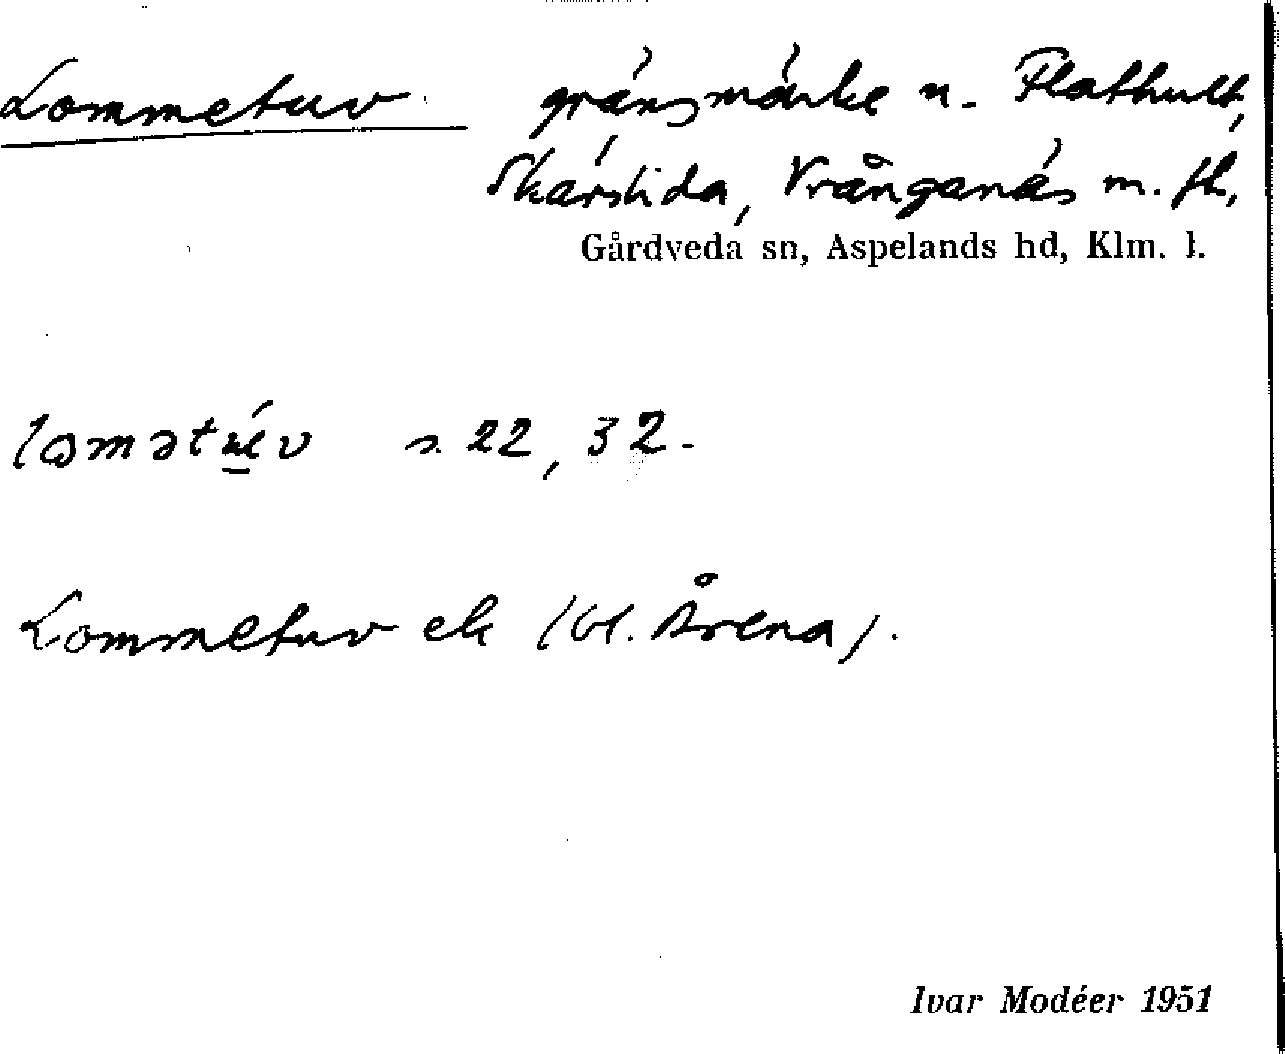 Lommetuv. gränsmärke n. Flathult,
Skärslida, Vrånganäs m. fl.
Gårdveda sn, Aspelands hd, Klm. l.
lomətu̲v s. 22, 32.
Lommetuv ek (Gl. Årena).
Ivar Modéer 1951